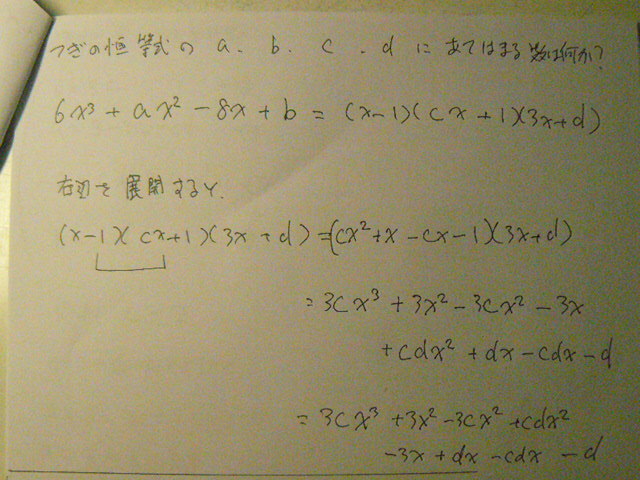 つぎの恒等式の a、b、c、d にあてはまる数は何か?
6x³ + ax² - 8x + b = (x-1)(cx+1)(3x+d)
右辺を展開すると、
(x-1)(cx+1)(3x+d) = (cx²+x-cx-1)(3x+d)
= 3cx³ + 3x² - 3cx² - 3x
+ cdx² + dx - cdx - d
= 3cx³ + 3x² - 3cx² + cdx²
- 3x + dx - cdx - d